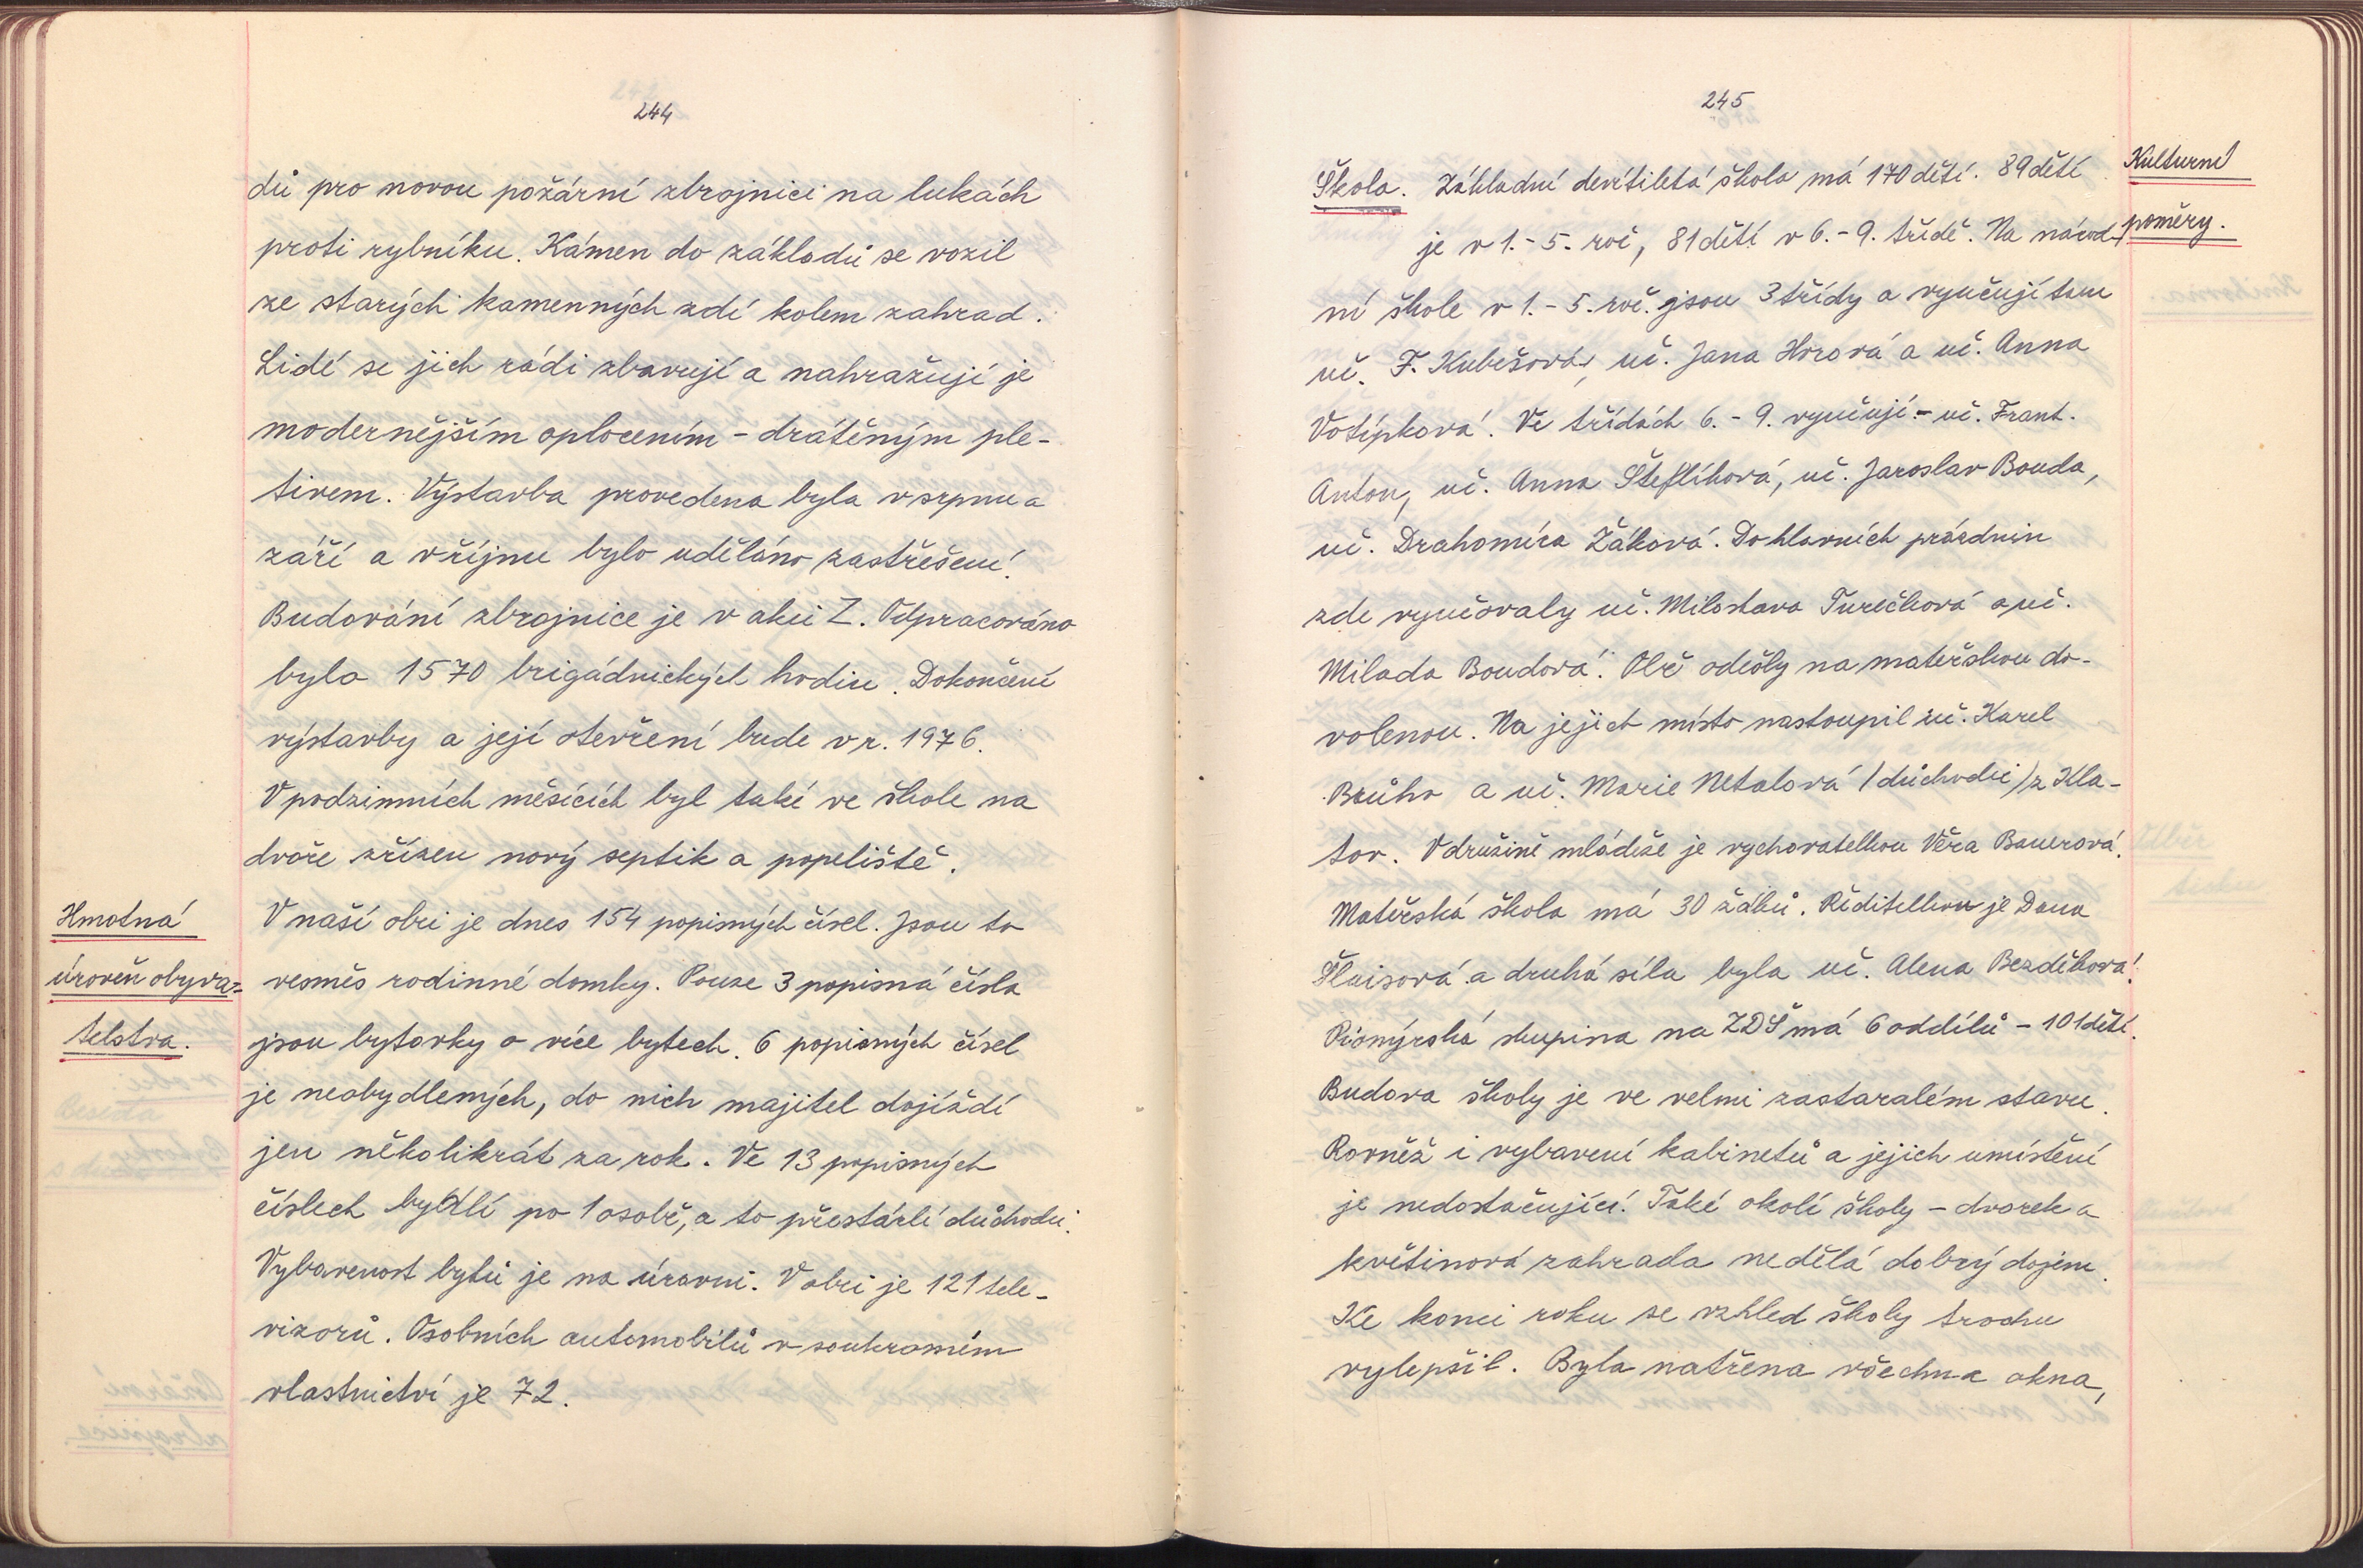 244
dů pro novou požární zbrojnici na lukách
proti rybníku. Kámen do základů se vozil
ze starých kamenných zdí kolem zahrad.
Lidé se jich rádi zbavují a nahražují je
modernějším oplocením - drátěným ple-
tivem. Výstavba provedena byla v srpnu a
září a v říjnu bylo uděláno zastřešení.
Budování zbrojnice je v akci Z. Odpracováno
bylo 1570 brigádnických hodin. Dokončení
výstavby a její otevření bude v r. 1976.
V podzimních měsících byl také ve škole na
dvoře zřízen nový septik a popeliště.
Hmotná
úroveň obyva-
telstva.
V naší obci je dnes 154 popisných čísel. Jsou to
vesměs rodinné domky. Pouze 3 popisná čísla
jsou bytovky o více bytech. 6 popisných čísel
je neobydlených, do nich majitel dojíždí
jen několikrát za rok. Ve 13 popisných
číslech bydlí po 1 osobě, a to přestárlí důchodci.
Vybavenost bytů je na úrovni. V obci je 121 tele-
vizorů. Osobních automobilů v soukromém
vlastnictví je 72.
245
Kulturní
poměry.
Škola. Základní devítiletá škola má 170 dětí. 89 dětí
je v 1.-5. roč, 81 dětí v 6.-9. třídě. Na národ-
ní škole v 1.-5. roč. jsou 3 třídy a vyučují tam
uč. F. Kubešová, uč. Jana Horová a uč. Anna
Votípková. Ve třídách 6.-9. vyučují - uč. Frant.
Anton, uč. Anna Šteflíková, uč. Jaroslav Bouda,
uč. Drahomíra Žáková. Do hlavních prázdnin
zde vyučovaly uč. Miloslava Turečková a uč.
Milada Boudová. Obě odešly na mateřskou do-
volenou. Na jejich místo nastoupil uč. Karel
a uč. Marie Netalová (důchodci) z Kla-
tov. V družině mládeže je vychovatelkou Věra Bauerová.
Mateřská škola má 30 žáků. Ředitelkou je Dana
a druhá síla byla uč. Alena Bezděková.
Pionýrská skupina na ZDŠ má 6 oddílů - 101 dětí.
Budova školy je ve velmi zastaralém stavu.
Rovněž i vybavení kabinetů a jejich umístění
je nedostačující. Také okolí školy - dvorek a
květinová zahrada nedělá dobrý dojem.
Ke konci roku se vzhled školy trochu
vylepšil. Byla natřena všechna okna,